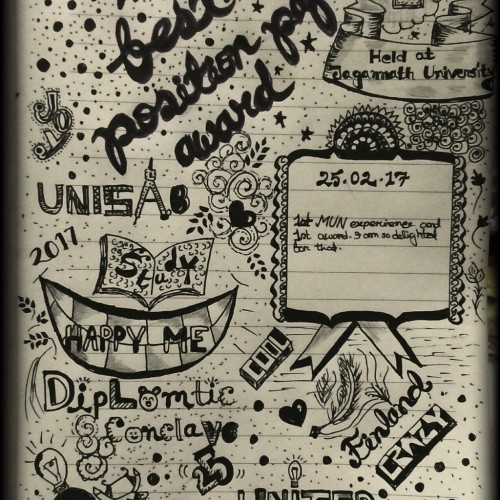 best
position
award
Held at
Jagannath University
JOY
25.02.17
1st MUN experience and
1st award. I am so delighted
for that.
UNISAB
2017
Study
HAPPY ME
COOL
DipLomtic
Conclave
25
Finland
CRAZY
UNITED